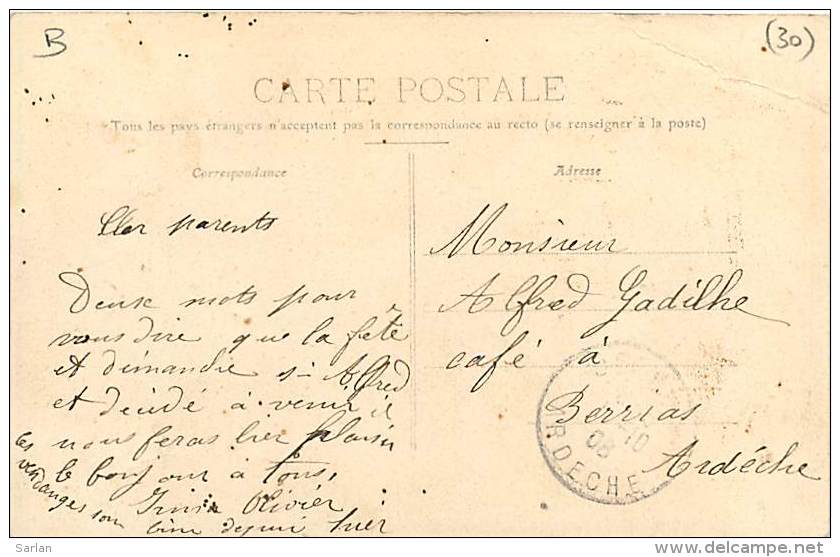 B
(30)
CARTE POSTALE
Tous les pays étrangers n'acceptent pas la correspondance au recto (se renseigner à la poste)
Correspondance
Cher parents
Deuse mots pour
vous dire que la fête
et dimandre si Alfred
et décidé à venir il
nous feras bien plaisir
le bonjour à tous,
Olivier
les vendanges son
bien depui hier
Adresse
Monsieur
Alfred Gadilhe
café à
Berrias
Ardèche
ARDECHE
10
08
Sarlan
www.delcampe.net